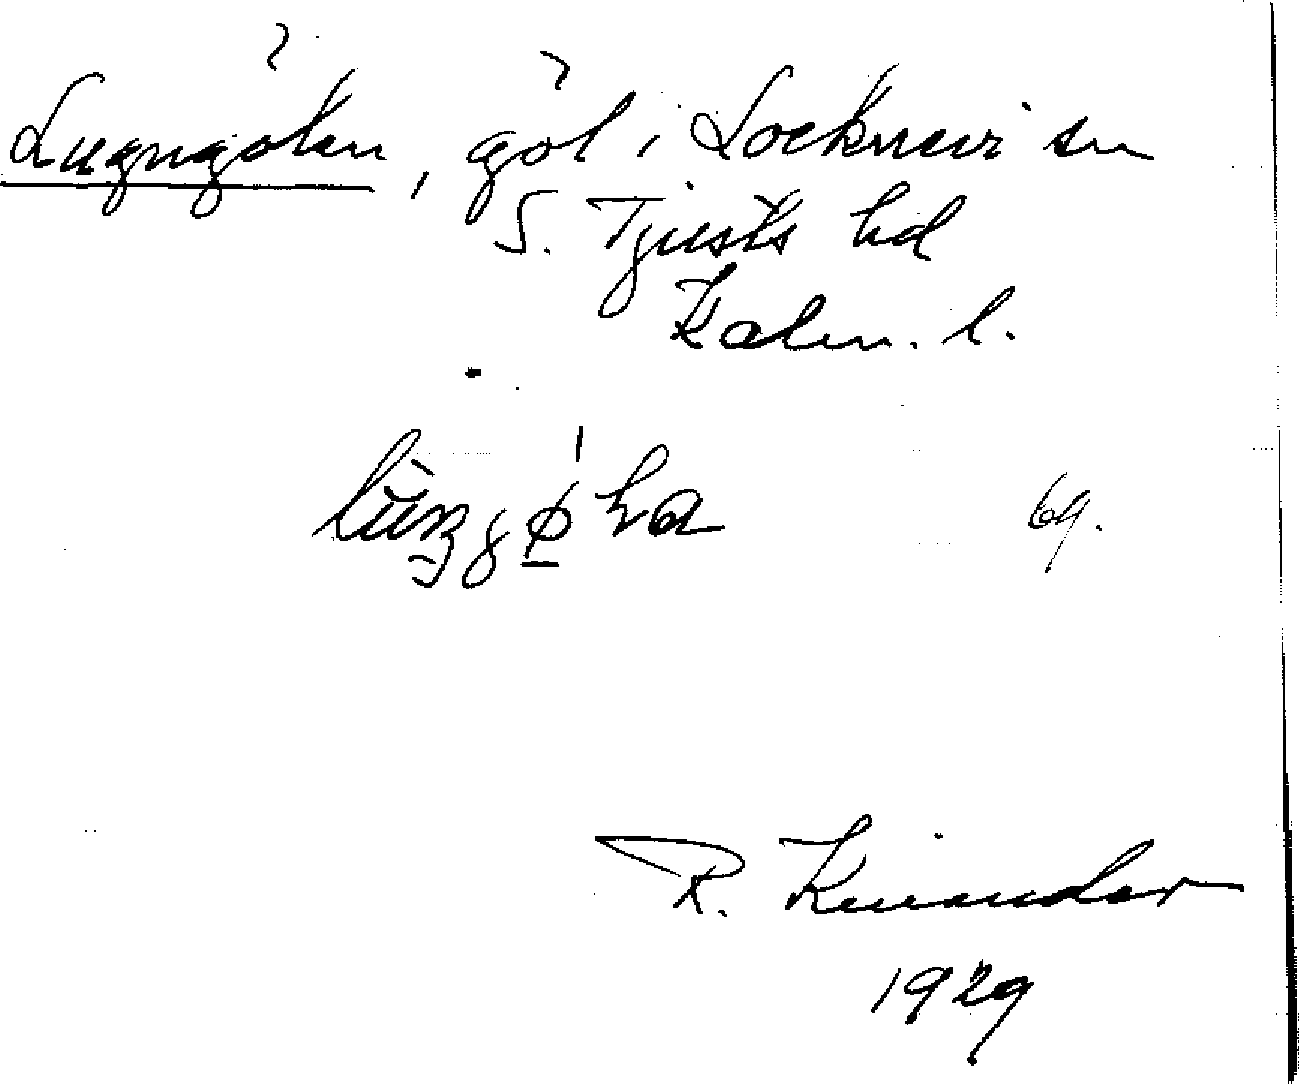 Lugngölen, göl i Locknevi sn
S. Tjusts hd
Kalm. l.
69.
R. Kinander
1929